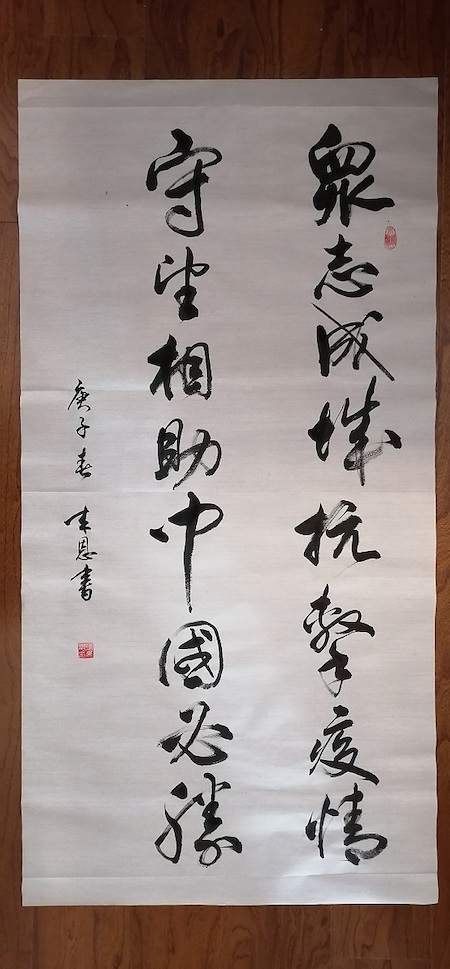 眾志成城抗擊疫情
守望相助中國必勝
庚子春 恩書